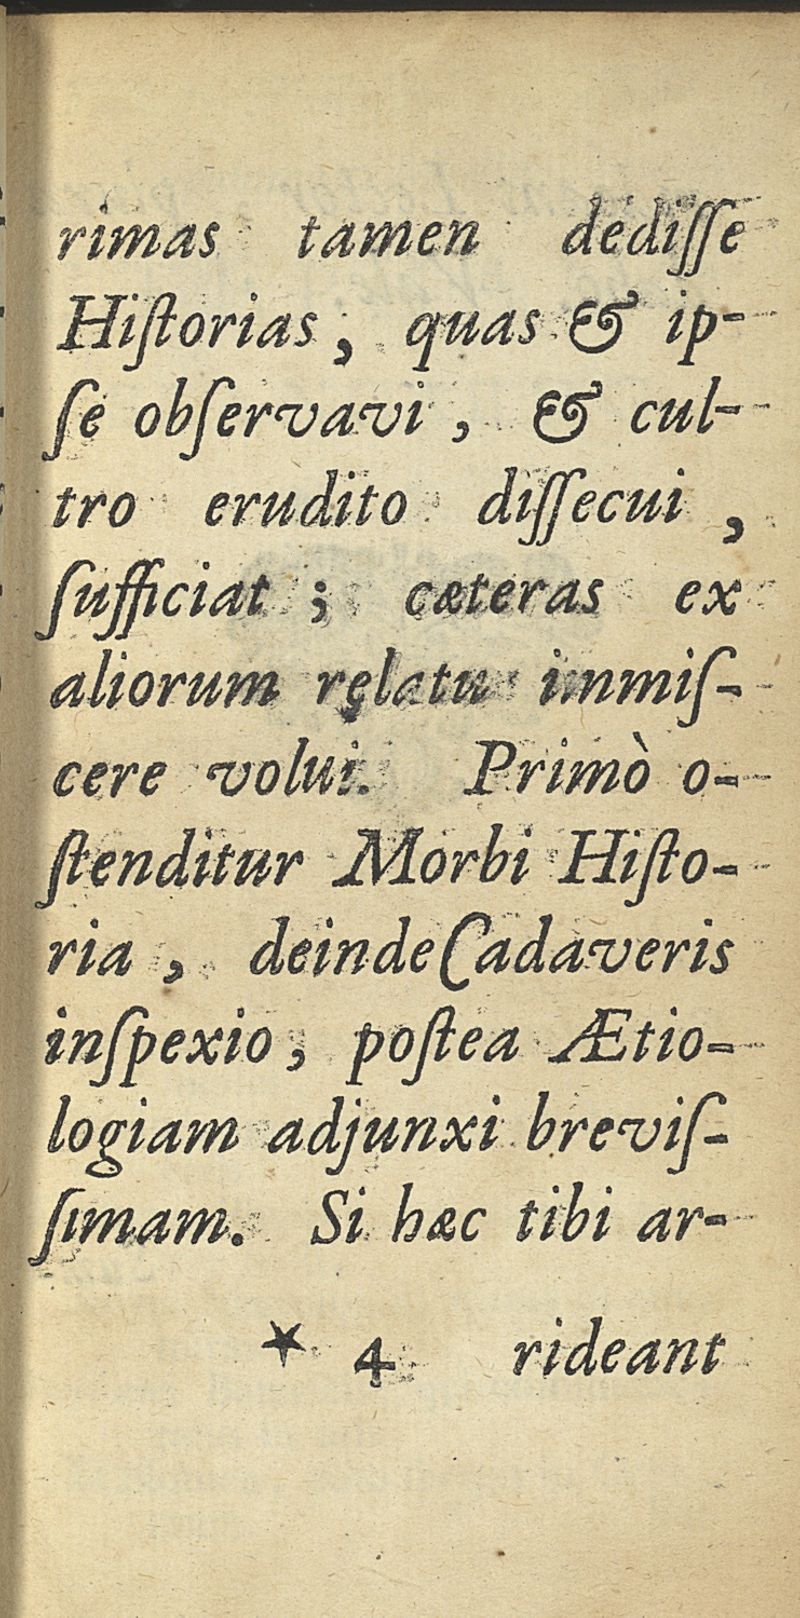 rimas tamen dediſſe
Hiſtorias, quas & ip-
ſe obſervavi, & cul-
tro erudito diſſecui,
ſufficiat; cæteras ex
aliorum relatu immiſ-
cere volui. Primò o-
ſtenditur Morbi Hiſto-
ria, deinde Cadaveris
inſpexio, poſtea Ætio-
logiam adjunxi breviſ-
ſimam. Si hæc tibi ar-
* 4 rideant